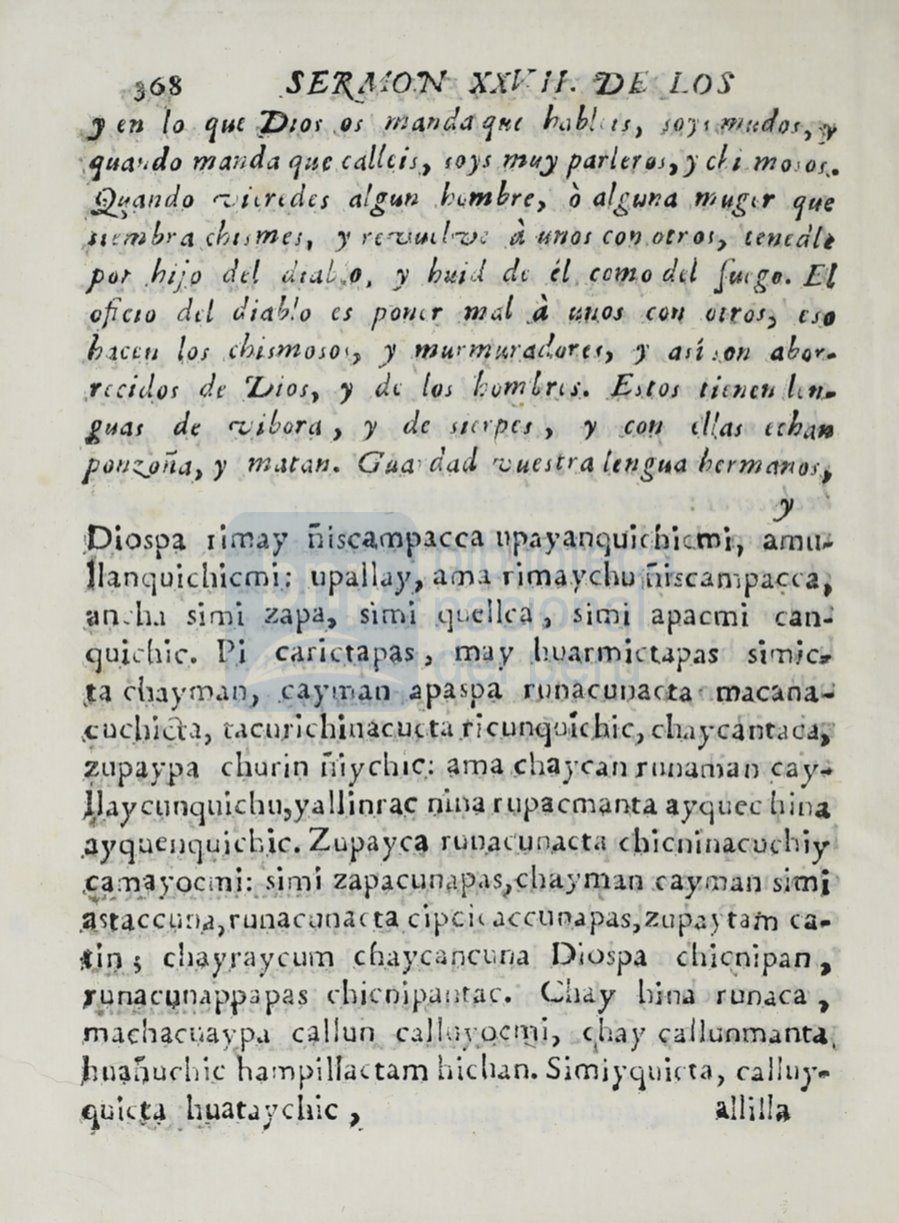 368 SERMON XXVII. DE LOS
y en lo que Dios os manda que hableis, soys mudos, y
quando manda que calleis, soys muy parleros, y chismosos.
Quando vieredes algun hombre, ò alguna muger que
siembra chismes, y revuelve à unos con otros, tenedle
por hijo del diablo, y huid de él como del fuego. El
oficio del diablo es poner mal à unos con otros, eso
hacen los chismosos, y murmuradores, y así son abor-
recidos de Dios, y de los hombres. Estos tienen len-
guas de vibora, y de sierpes, y con ellas echan
ponzoña, y matan. Guardad vuestra lengua hermanos,
y
Diospa rimay ñiscampacca upayanquichicmi, amu-
llanquichicmi: upallay, ama rimaychu ñiscampacca,
ancha simi zapa, simi quellca, simi apacmi can-
quichic. Pi carictapas, may huarmictapas simic-
ta chayman, cayman apaspa runacunacta macana-
cuchicta, tacurichinacucta ricunquichic, chaycantaca,
zupaypa churin ñiychic: ama chaycan runaman cay-
llaycunquichu, yallinrac nina rupacmanta ayquec hina
ayquenquichic. Zupayca runacunacta chicninacuchiy
camayocmi: simi zapacunapas, chayman cayman simi
astaccuna, runacunacta cipcicaccunapas, zupaytam ca-
tin; chayraycum chaycancuna Diospa chicnipan,
runacunappapas chicnipantac. Chay hina runaca,
machacuaypa callun calluyocmi, chay callunmanta
huañuchic hampillactam hichan. Simiyquicta, calluy-
quicta huataychic, allilla